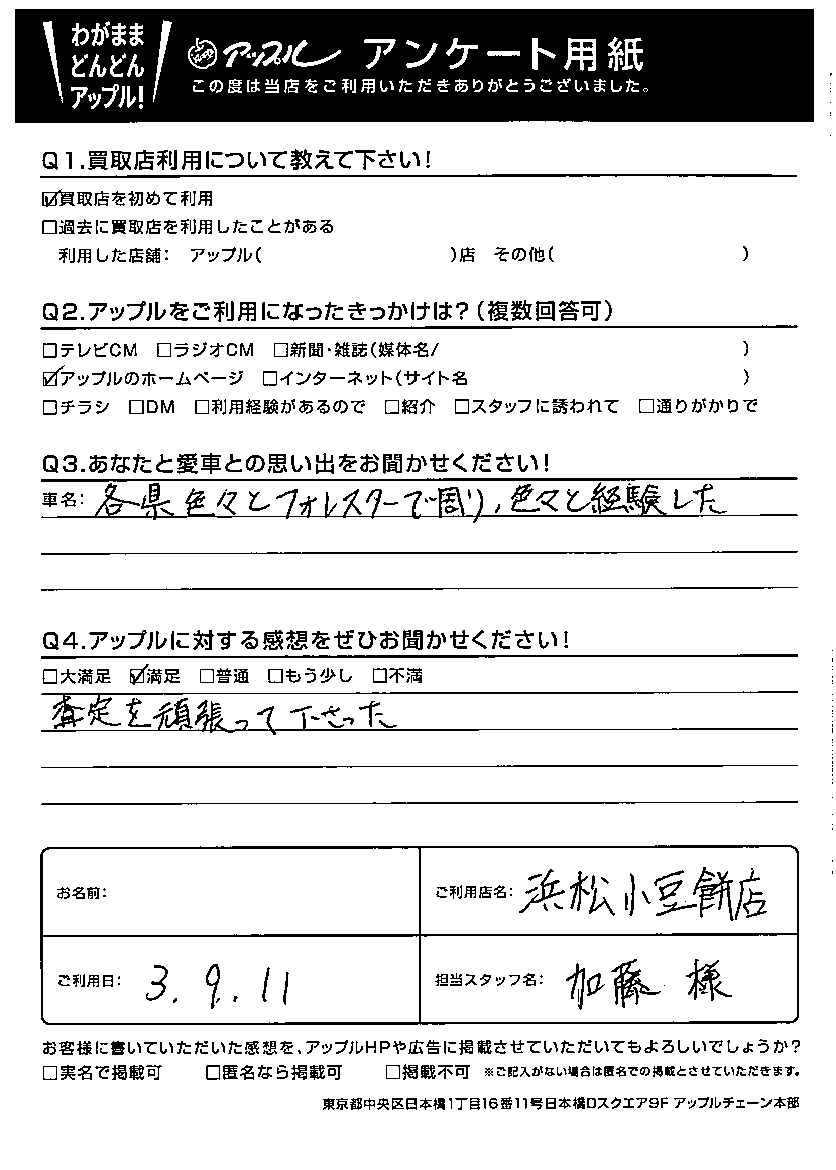 わがまま
どんどん
アップル!
アップル アンケート用紙
この度は当店をご利用いただきありがとうございました。
Q1.買取店利用について教えて下さい!
☑買取店を初めて利用
□過去に買取店を利用したことがある
利用した店舗: アップル( )店 その他( )
Q2.アップルをご利用になったきっかけは?(複数回答可)
□テレビCM □ラジオCM □新聞・雑誌(媒体名/ )
☑アップルのホームページ □インターネット(サイト名 )
□チラシ □DM □利用経験があるので □紹介 □スタッフに誘われて □通りがかりで
Q3.あなたと愛車との思い出をお聞かせください!
車名: 各県色々とフォレスターで周り、色々と経験した
Q4.アップルに対する感想をぜひお聞かせください!
□大満足 ☑満足 □普通 □もう少し □不満
査定を頑張って下さった
お名前:
ご利用店名: 浜松小豆餅店
ご利用日: 3.9.11
担当スタッフ名: 加藤 様
お客様に書いていただいた感想を、アップルHPや広告に掲載させていただいてもよろしいでしょうか?
□実名で掲載可 □匿名なら掲載可 □掲載不可 ※ご記入がない場合は匿名での掲載とさせていただきます。
東京都中央区日本橋1丁目16番11号日本橋Dスクエア9F アップルチェーン本部